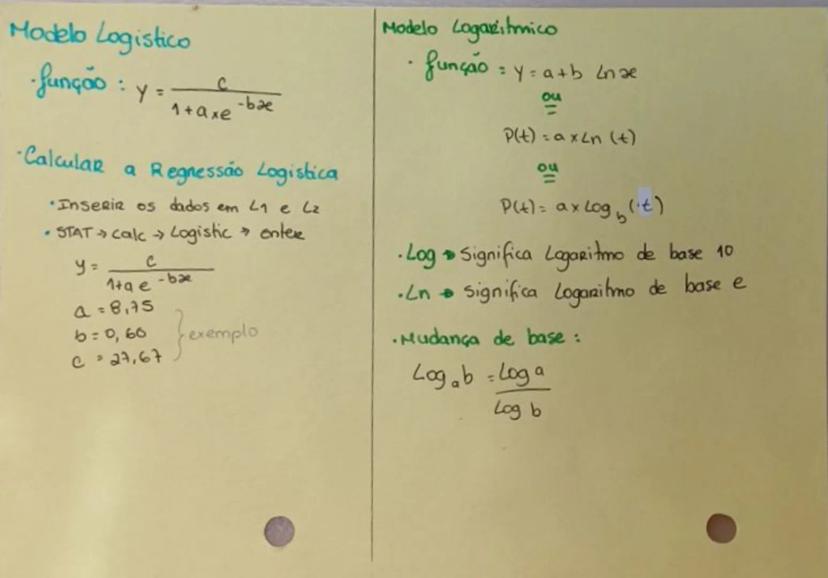 Modelo Logistico
· função : y = c / 1 + a x e^-bx
· Calcular a Regressão Logistica
• Inserir os dados em L1 e L2
• STAT → calc → Logistic → enter
y = c / 1+a e^-bx
a = 8,75
b = 0,60
c = 27,67
} exemplo
Modelo Logaritmico
· função : y = a + b Ln x
ou
P(t) = a x Ln (t)
ou
P(t) = a x Log_b (·t)
· Log → Significa Logaritmo de base 10
· Ln → Significa Logaritmo de base e
· Mudança de base :
Log_a b = Log a / Log b